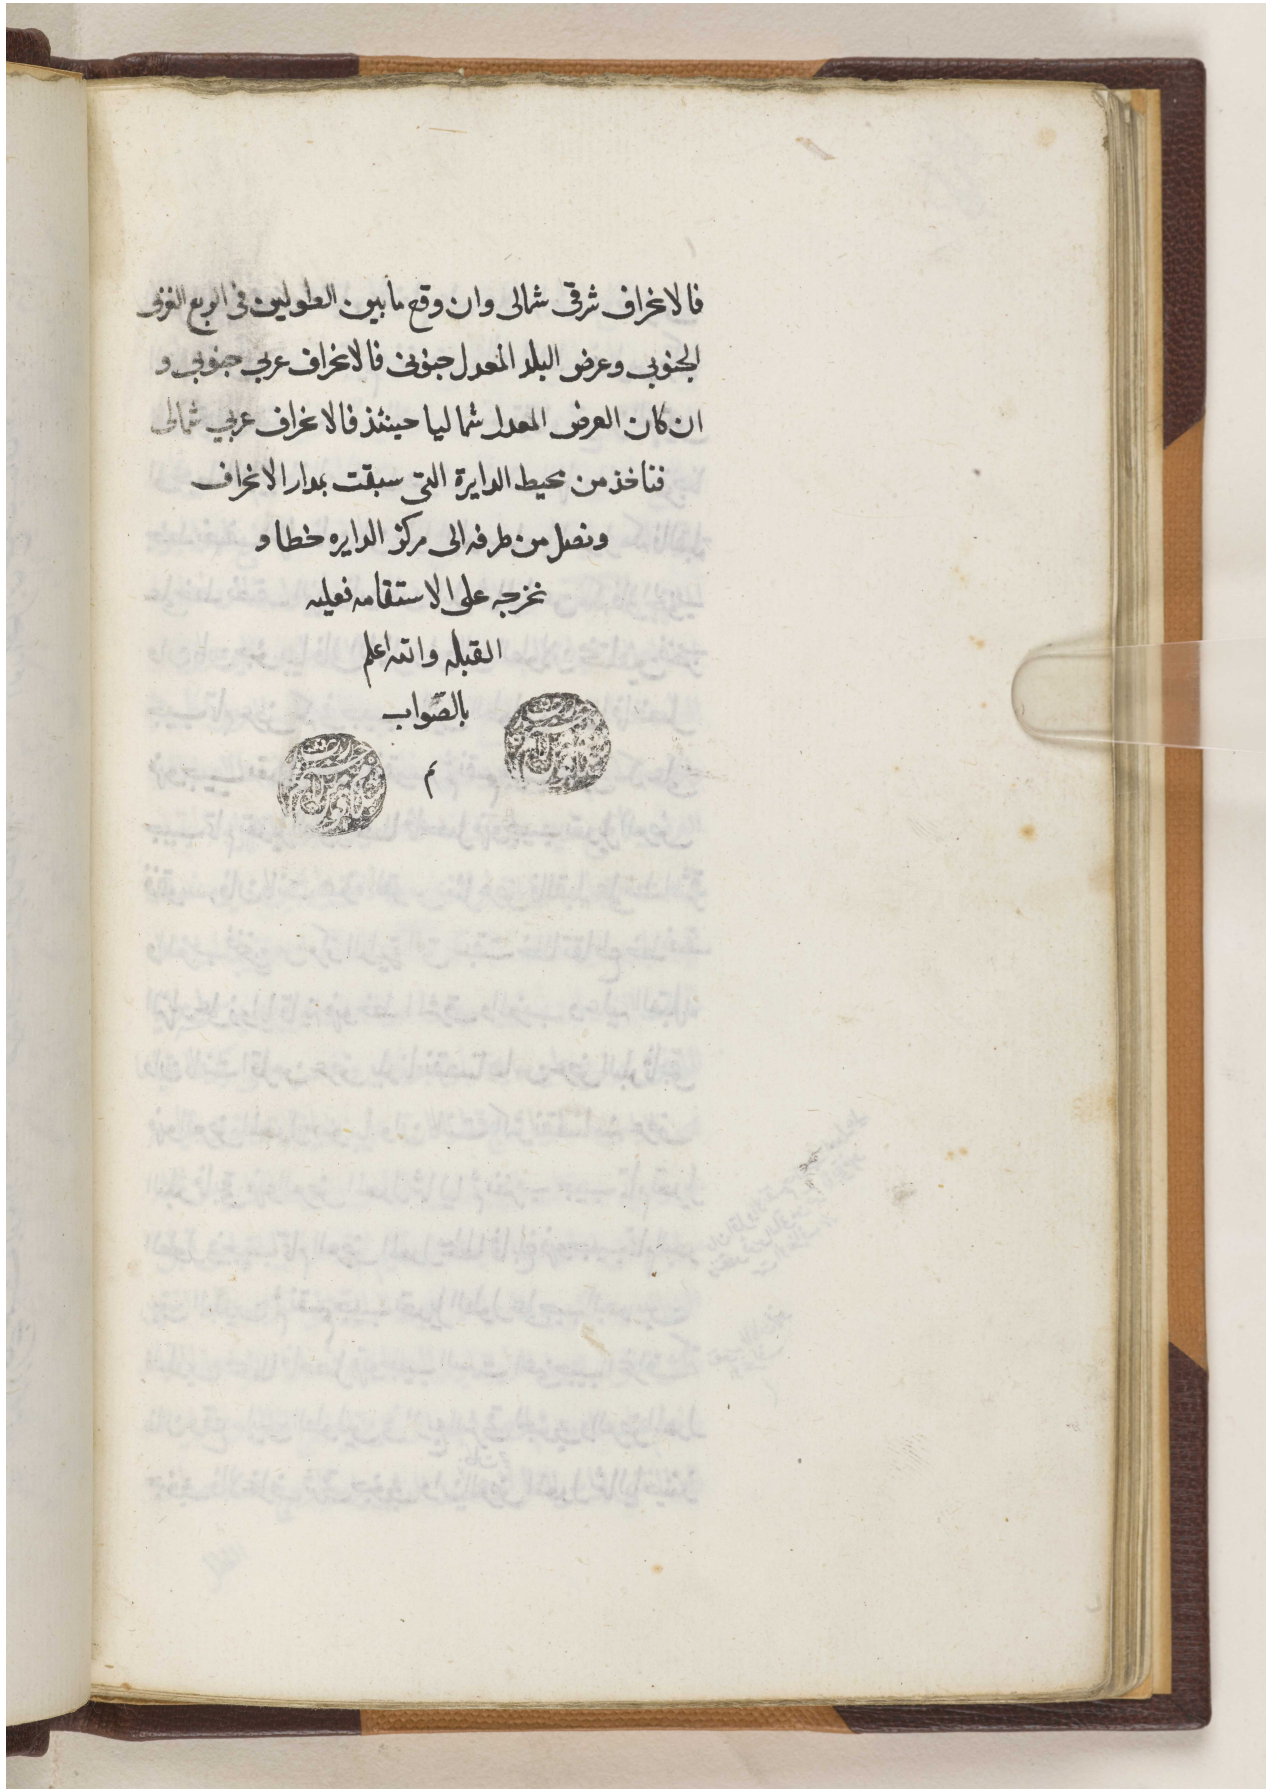 فالانحراف شرقى شمالى وان وقع ما بين الطولين فى الربع الغربى
الجنوبي وعرض البلد المعدل جنوبى فالانحراف غربي جنوبي و
ان كان العرض المعدل شماليا حينئذ فالانحراف غربي شمالى
فناخذ من محيط الدايرة التى سبقت بمدار الانحراف
ونصل من طرفه الى مركز الدايره خطا و
نخرجه على الاستقامه فعليه
القبله والله اعلم
بالصّواب
م